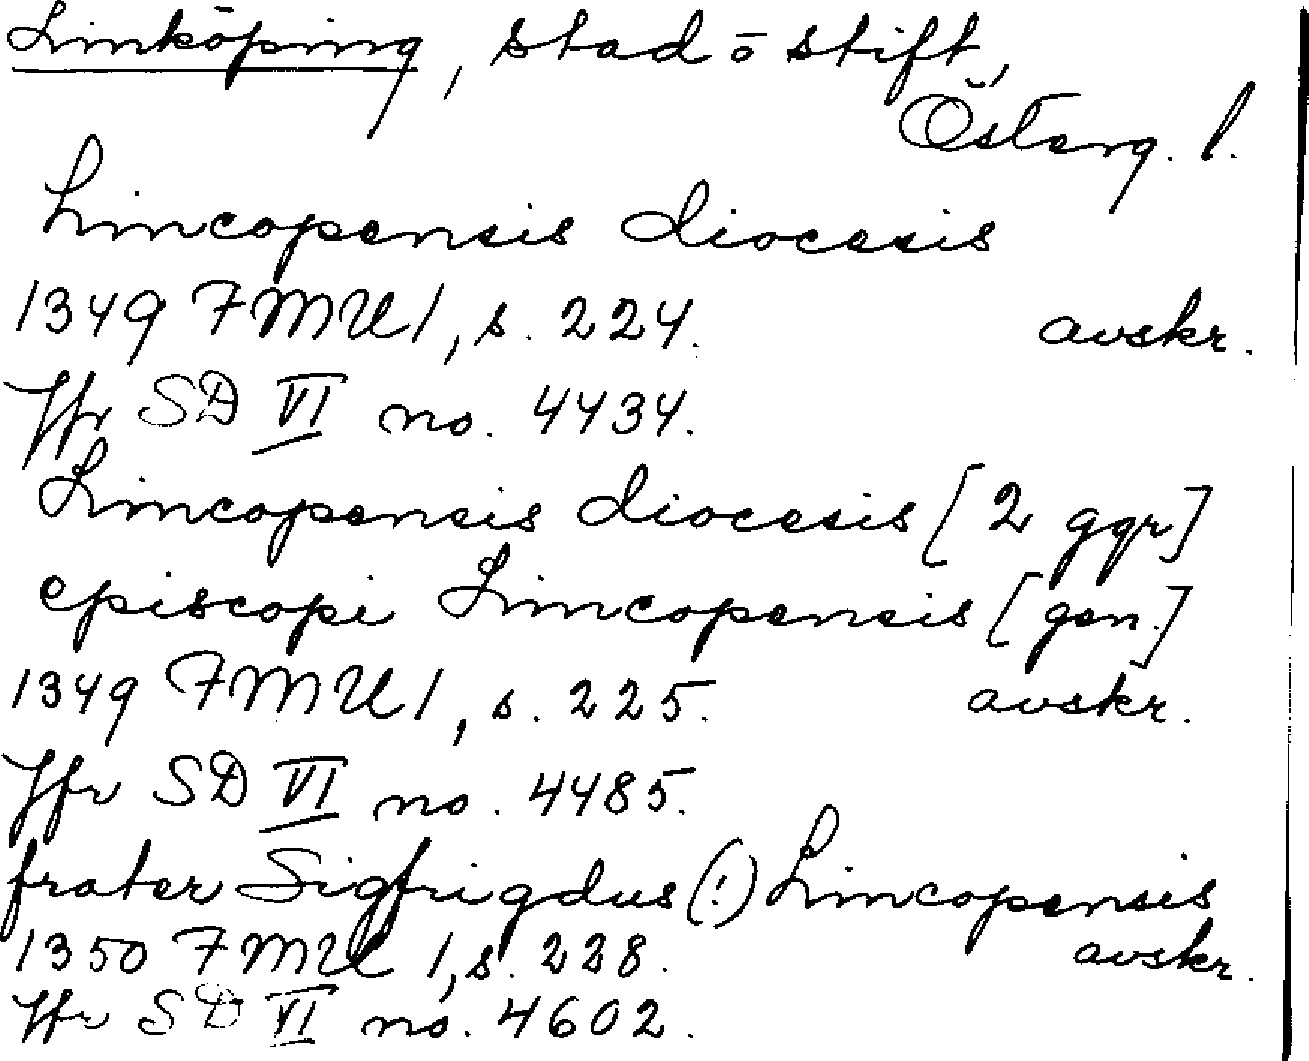 Linköping, stad o stift,
Österg. l.
Lincopensis diocesis
1349 FMU 1, s. 224. avskr.
Jfr SD VI no. 4434.
Lincopensis diocesis [2 ggr]
episcopi Lincopensis [gen.]
1349 FMU 1, s. 225. avskr.
Jfr SD VI no. 4485.
frater Sigfrigdus (!) Lincopensis
1350 FMU 1, s. 228. avskr.
Jfr SD VI no. 4602.